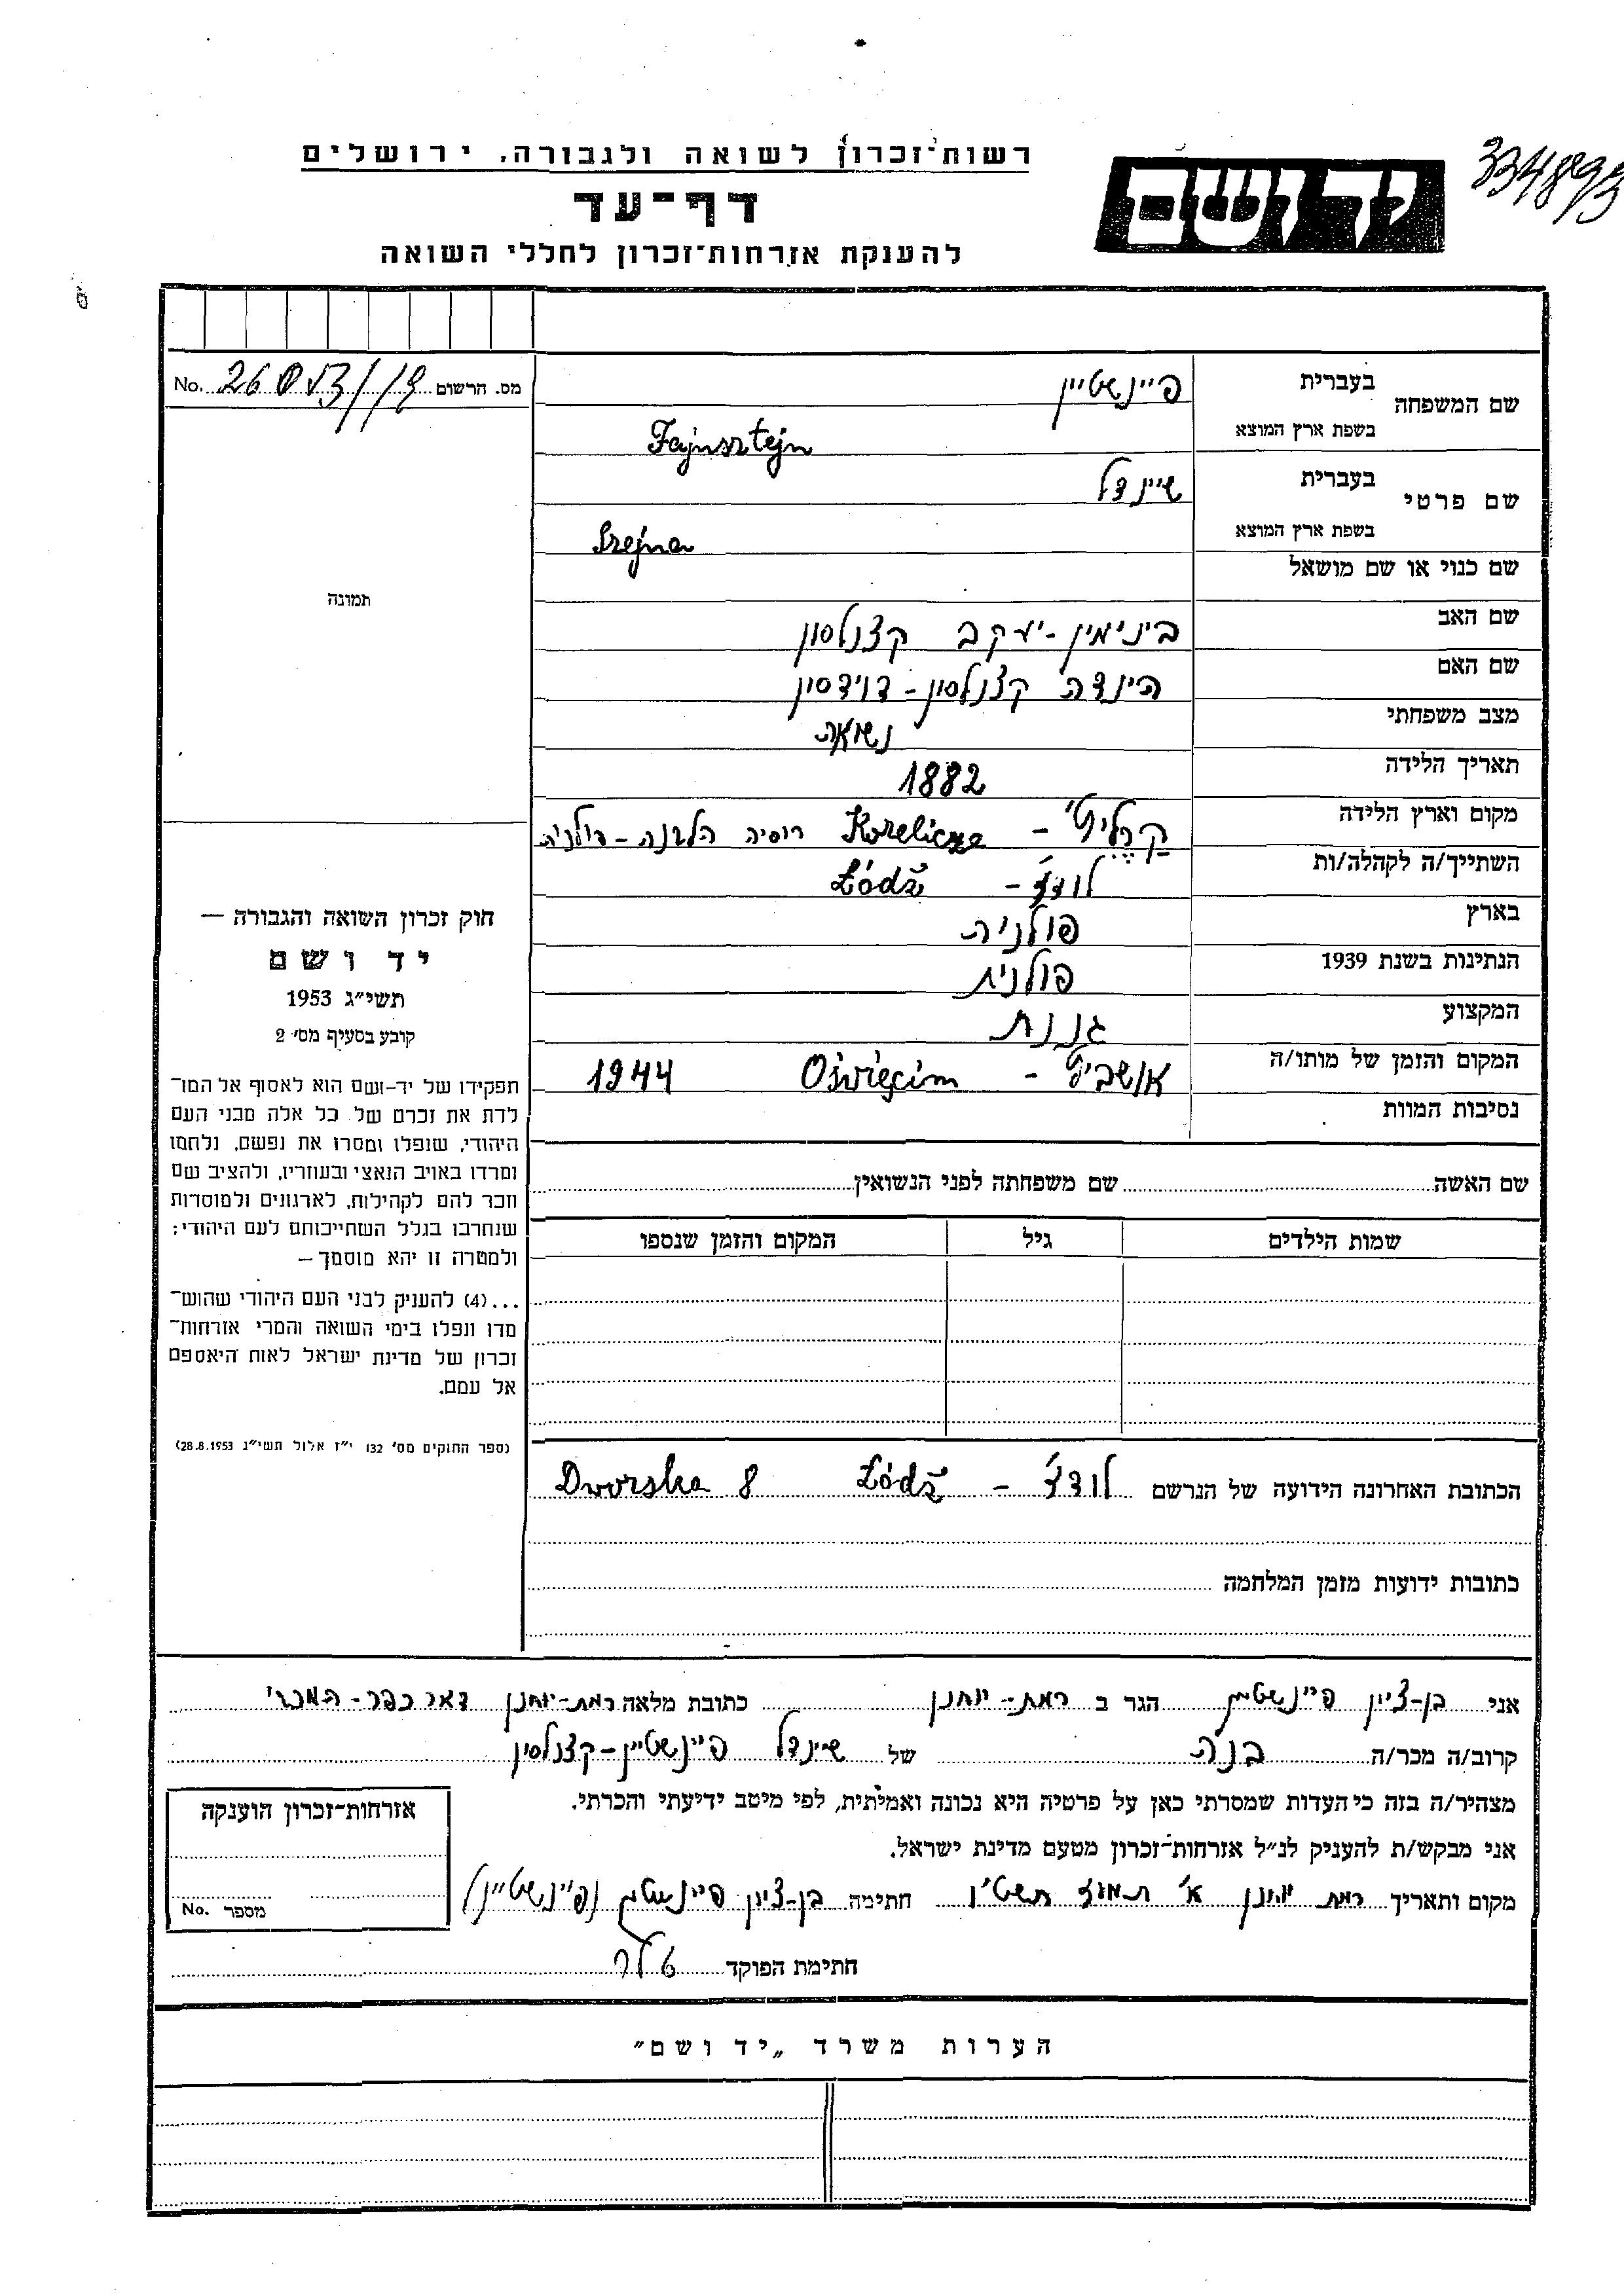 334893
רשות־זכרון לשואה ולגבורה, ירושלים
יד ושם
דף־עד
להענקת אזרחות־זכרון לחללי השואה
מס. הרשום No.
שם המשפחה בעברית פיינשטיין
בשפת ארץ המוצא Fajnsztejn
שם פרטי בעברית שיינדל
בשפת ארץ המוצא Szejna
שם כנוי או שם מושאל
שם האב בינימין-יעקב קצנלסון
שם האם הינדה קצנלסון-דוידסון
מצב משפחתי נשואה
תאריך הלידה 1882
מקום וארץ הלידה קרליץ' - Korelicze רוסיה הלבנה-פולניה
השתייך/ה לקהלה/ות לודז' - Łódź
בארץ פולניה
הנתינות בשנת 1939 פולנית
המקצוע גננת
המקום והזמן של מותו/ה אושביץ - Oświęcim 1944
נסיבות המוות
תמונה
חוק זכרון השואה והגבורה —
יד ושם
תשי״ג 1953
קובע בסעיף מס׳ 2
תפקידו של יד-ושם הוא לאסוף אל המו־
לדת את זכרם של כל אלה מבני העם
היהודי, שנפלו ומסרו את נפשם, נלחמו
ומרדו באויב הנאצי ובעוזריו, ולהציב שם
וזכר להם לקהילות, לארגונים ולמוסדות
שנחרבו בגלל השתייכותם לעם היהודי;
ולמטרה זו יהא מוסמך —
...(4) להעניק לבני העם היהודי שהוש־
מדו ונפלו בימי השואה והמרי אזרחות־
זכרון של מדינת ישראל לאות היאספם
אל עמם.
(ספר החוקים מס׳ 132 י״ז אלול תשי״ג 28.8.1953)
שם האשה שם משפחתה לפני הנשואין
שמות הילדים גיל המקום והזמן שנספו
הכתובת האחרונה הידועה של הנרשם לודז' - Łódź Dworska 8
כתובות ידועות מזמן המלחמה
אני בן-ציון פיינשטיין הגר ב רמת-יוחנן כתובת מלאה רמת-יוחנן דאר כפר-המכבי
קרוב/ה מכר/ה בנה של שיינדל פיינשטיין-קצנלסון
מצהיר/ה בזה כי העדות שמסרתי כאן על פרטיה היא נכונה ואמיתית, לפי מיטב ידיעתי והכרתי.
אני מבקש/ת להעניק לנ״ל אזרחות־זכרון מטעם מדינת ישראל.
מקום ותאריך רמת יוחנן א' תמוז תשט"ו חתימה בן-ציון פיינשטיין (פיינשטיין)
חתימת הפוקד
אזרחות־זכרון הוענקה
מספר No.
הערות משרד „יד ושם״